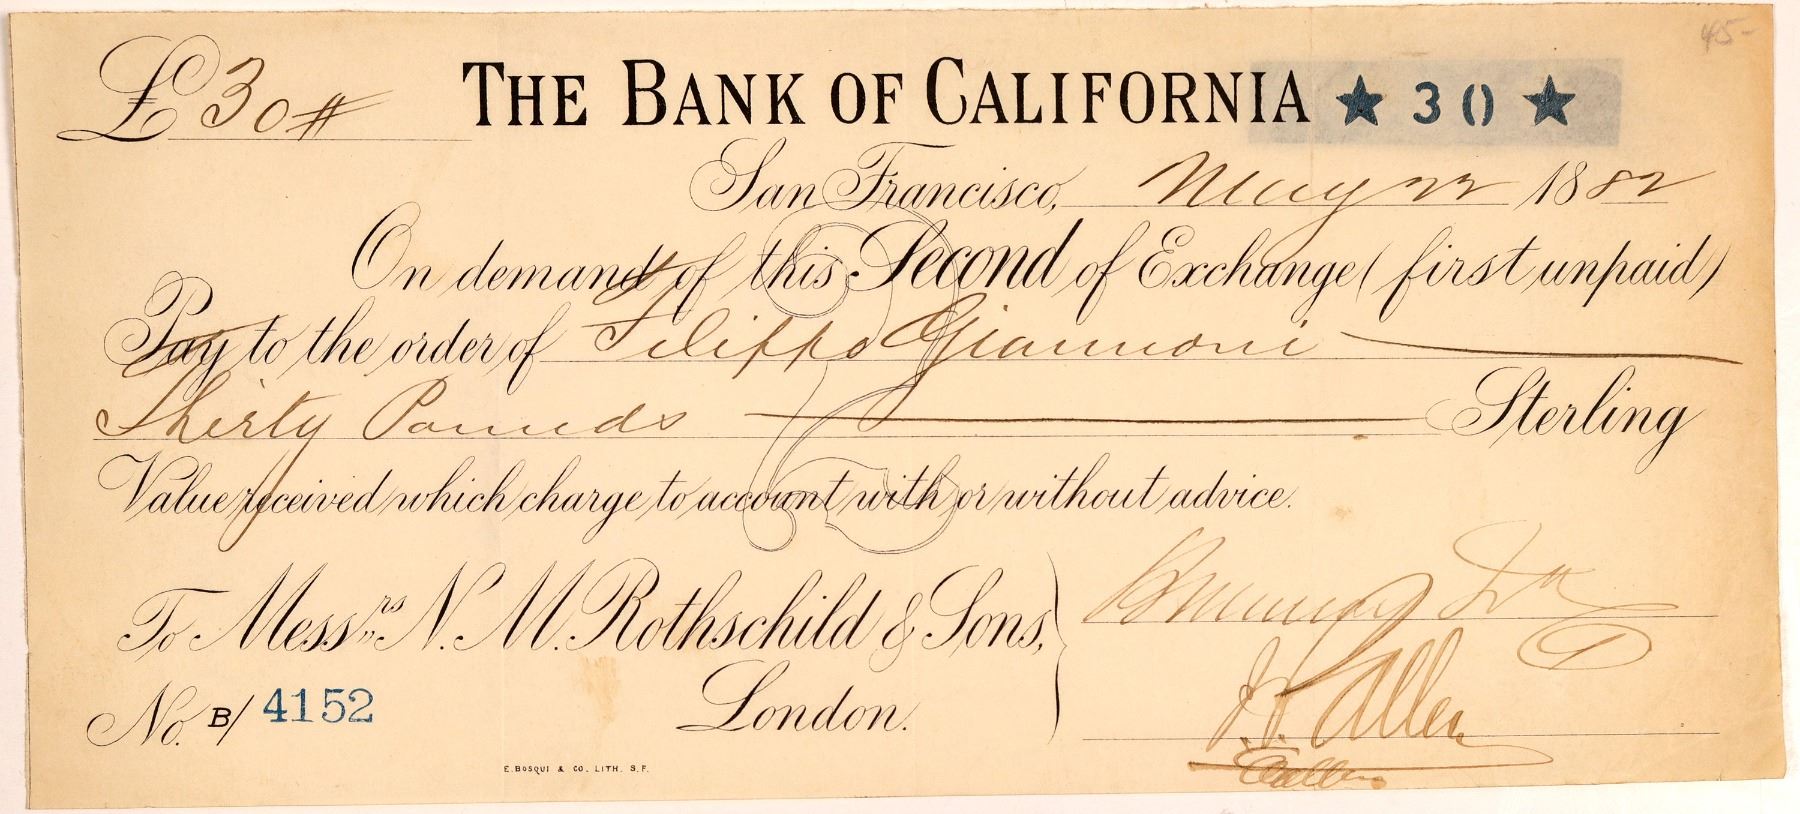 45-
£30# THE BANK OF CALIFORNIA ★ 30 ★
San Francisco, May 22 1882
On demand of this Second of Exchange (first unpaid)
Pay to the order of Filippo Giannoni
Thirty Pounds Sterling
Value received which charge to account with or without advice.
To Messrs N. M. Rothschild & Sons,
London.
No. B/ 4152
E. BOSQUI & CO. LITH. S.F.
Allen